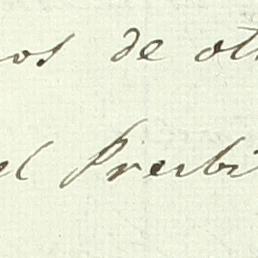 nos de ot
el Presbi